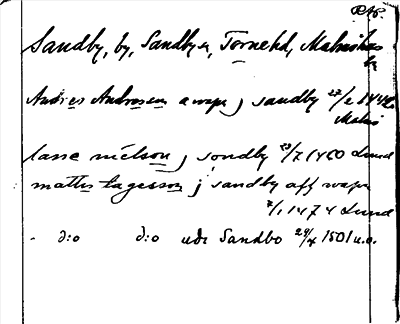 Sandby, by, Sandby s, Torneh d, Malmöhus
län
Andres Andressen a wapn j sandby 27/2 1442
Malmö
lasse niælson j sondby 23/7 1460 Lund
mattis lagesson j sandby aff wapn
7/1 1474 Lund
- d:o d:o udi Sandbo 24/4 1501 u.o.